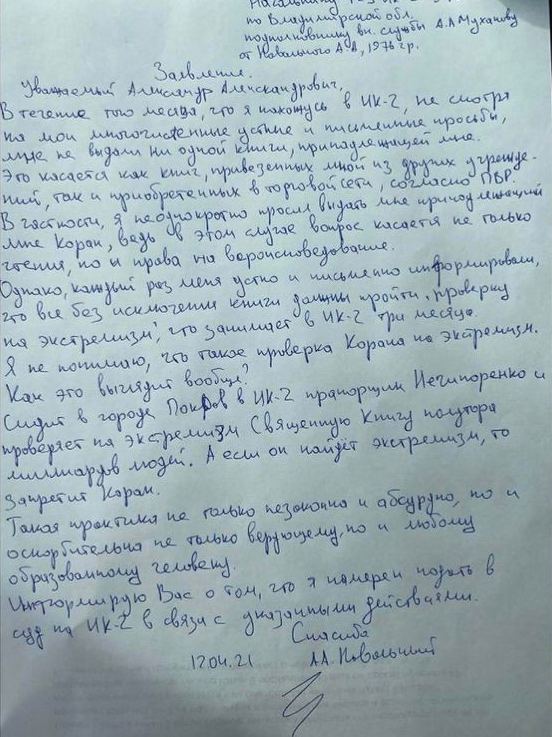 Начальнику
по Владимирской обл.
подполковнику вн. службы А.А Муханову
от Навального А.А, 1976 г.р.
Заявление.
Уважаемый Александр Александрович,
В течение того месяца, что я нахожусь в ИК-2, не смотря
на мои многочисленные устные и письменные просьбы,
мне не выдали ни одной книги, принадлежащей мне.
Это касается как книг, привезенных мной из других учрежде-
ний, так и приобретенных в торговой сети, согласно ПВР.
В частности, я неоднократно просил выдать мне принадлежащий
мне Коран, ведь в этом случае вопрос касается не только
чтения, но и права на вероисповедование.
Однако, каждый раз меня устно и письменно информировали,
что все без исключения книги должны пройти "проверку
на экстремизм", что занимает в ИК-2 три месяца.
Я не понимаю, что такое проверка Корана на экстремизм.
Как это выглядит вообще?
Сидит в городе Покров в ИК-2 прапорщик Нечипоренко и
проверяет на экстремизм Священную Книгу полутора
миллиардов людей. А если он найдёт экстремизм, то
запретит Коран.
Такая практика не только незаконна и абсурдна, но и
оскорбительна не только верующему, но и любому
образованному человеку.
Информирую Вас о том, что я намерен подать в
суд на ИК-2 в связи с указанными действиями.
Спасибо
12.04.21 А.А. Навальный